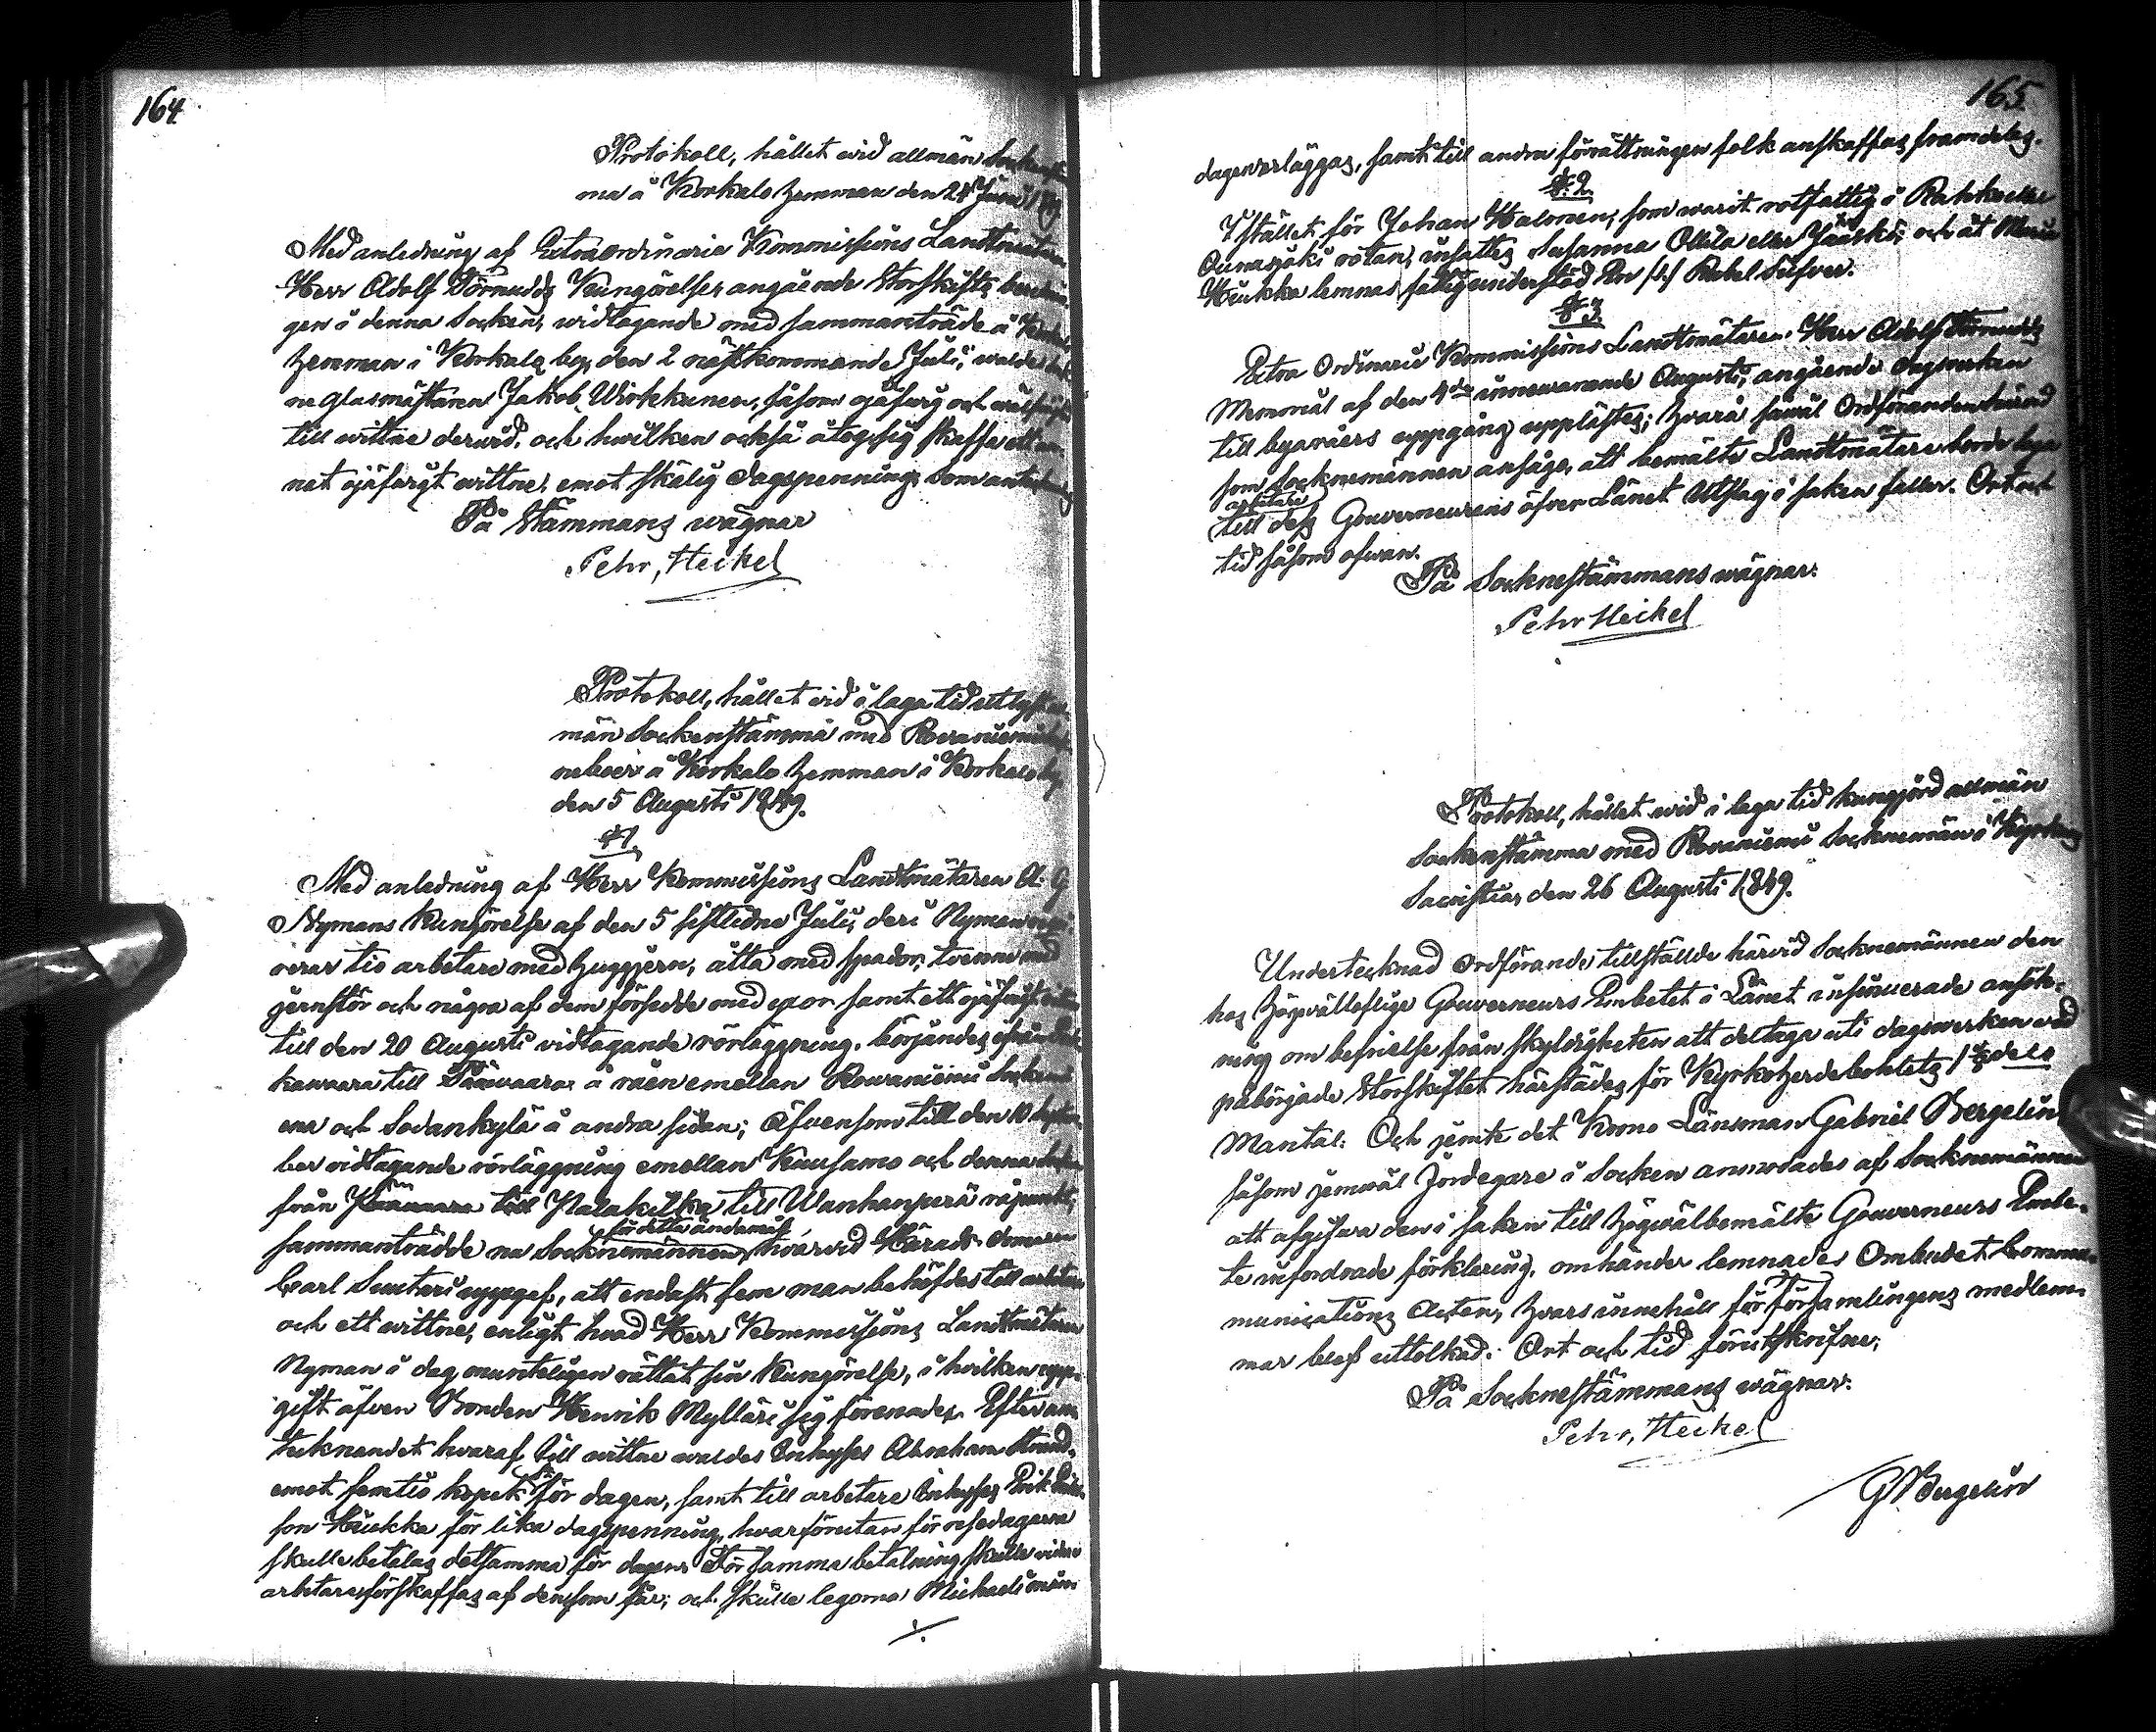 164.
Protokoll, hållet vid allmän
ma å Korkalo hemman den 24 Juni
Med anledning af Extraordinarie Kommissions Landtmätaren
Herr Adolf Törnudds Kungörelser angående Storskifts
gen i denna Socken, widtagande med sammanträde å
hemman i Korkala by, den 2 nästkommande Juli, waldes
ne glasmästaren Jakob Wirkkunen, såsom ojäfvig och
till wittne derwid, och hwilken också åtog sig skaffa ett an-
nat ojäfvigt wittne, emot skälig dagspenning, som
På Stämmans wägnar
Pehr, Heikel
Protokoll, hållet vid i laga tid utlyst all-
män Sockenstämma med Rovaniemi
neboer å Korkalo hemman i Korkalo by
den 5 Augusti 1849.
§1.
Med anledning af Herr Kommissions Landtmätaren A. G
Nymans Kungörelse af den 5 sistlidne Juli, deri Nyman
rerar tio arbetare med huggjern, åtta med spador, tvenne med
jernstör och några af dem försedde med yxor samt ett ojäfvigt
till den 20 Augusti vidtagande rörläggning, börjandes ifrån
kavaara till Päävaara å råen emellan Rowaniemi Socken
ena och Sodankylä å andra sidan; äfvensom till den 10
ber vidtagande rörläggning emellan Kuusamo och denna
från till till Wanhanperä råpunkt,
för detta ändamål
sammanträdde nu Socknemännen, hvarvid Härads domaren
Carl Suutari uppgaf, att endast fem man behöfdes till
och ett wittne, enligt hvad Herr Kommissions Landtmätaren
Nyman i dag munteligen rättat sin Kungörelse, i hvilken upp-
gift äfven Bonden Henrik Mylläri sig förenades. Efter an-
tecknandet hvaraf till wittne waldes Inhyses Abraham
emot femtio kopek för dagen, samt till arbetare Inhyses Erik
son Hiukka för lika dagspenning, hvarförutan för resedagarna
skulle betalas detsamma för dagen. För samma betalning skulle
arbetare förskaffas af den som får; och skulle legorna Michaeli
165.
dagen erläggas, samt till andra förrättningen folk anskaffas framdeles.
§.2.
I stället för Johan Halonen, som warit rotfattig i
Ounasjoki rotan, insattes Susanna Ollila eller Jääskö; och åt
Hiukka lemnas fattigunderstöd En (1) Rubel Silfver.
§.3.
Extra Ordinarie Kommissions Landtmätaren Herr Adolf Törnudds
Memorial af den 4de innewarande Augusti, angående dagsverken
till byaråers uppgång upplästes; hvarå såwäl Ordföranden
som Socknemännen ansågo, att bemälte Landtmätare borde lega
arbetare
till dess Gouverneurens öfver Länet Utslag i saken faller. Ort och
tid såsom ofwan.
På Socknestämmans wägnar:
Pehr Heikel
Protokoll, hållet wid i laga tid kungjord allmän
Sockenstämma med Rovaniemi Socknemän i Kyrkans
Sacristia, den 26 Augusti 1849.
Undertecknad Ordförande tillställde härvid Socknemännen den
hos Högvälloflige Gouverneurs Embetet i Länet insinuerade ansök-
ning om befrielse från skyldigheten att deltaga uti dagsverken wid
påbörjade Storskiftet härstädes för Kyrkoherdebohlets
Mantal. Och jemte det Krono Länsman Gabriel Bergelin
såsom jemwäl Jordegare i Socken anmodades af Socknemännen
att afgifva den i saken till högwälbemälte Gouverneurs Embe-
te infordrade förklaring, omhänder lemnades Ombudet Commu-
nications Acten, hvars innehåll för församlingens medlem-
mar blef uttolkad. Ort och tid förutskrifne.
På Socknestämmans wägnar:
Pehr, Heikel
G Bergelin